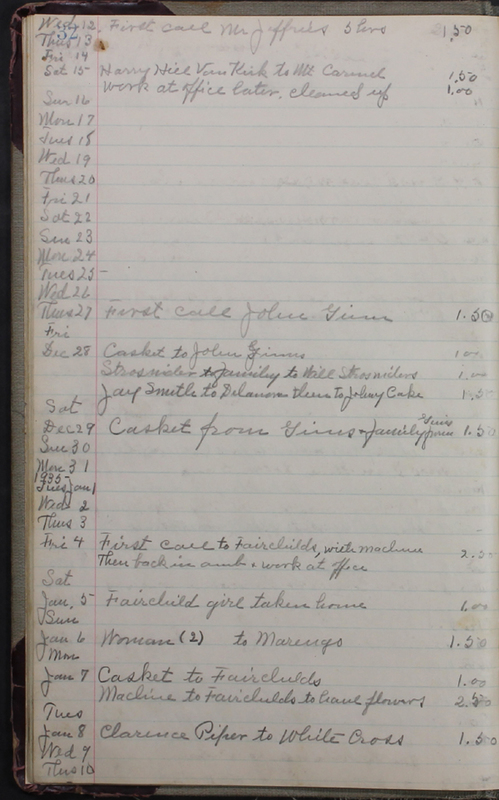 Wed 12 First call Mr Jeffries 5 hrs 1.50
Thus 13
Fri 14
Sat 15 Harry Hill Van Kirk to Mt Carmel 1.50
Work at office later, cleaned up 1.00
Sun 16
Mon 17
Tues 18
Wed 19
Thus 20
Fri 21
Sat 22
Sun 23
Mon 24
Tues 25 -
Wed 26
Thus 27 First call John Ginn 1.50
Fri
Dec 28 Casket to John Ginns 1.00
Strosnider to family to Will Strosniders 1.00
Jay Smith to Delanova then to Johny Cake 1.50
Sat
Dec 29 Casket from Ginns & family from Ginns 1.50
Sun 30
Mon 31
1935-
Tues Jan 1
Wed 2
Thus 3
Fri 4 First call to Fairchilds, with machine 2.50
Then back in amb. & work at office
Sat
Jan. 5 Fairchild girl taken home 1.00
Sun
Jan 6 Woman (2) to Marengo 1.50
Mon
Jan 7 Casket to Fairchilds 1.00
Machine to Fairchilds to haul flowers 2.50
Tues
Jan 8 Clarence Piper to White Cross 1.50
Wed 9
Thus 10